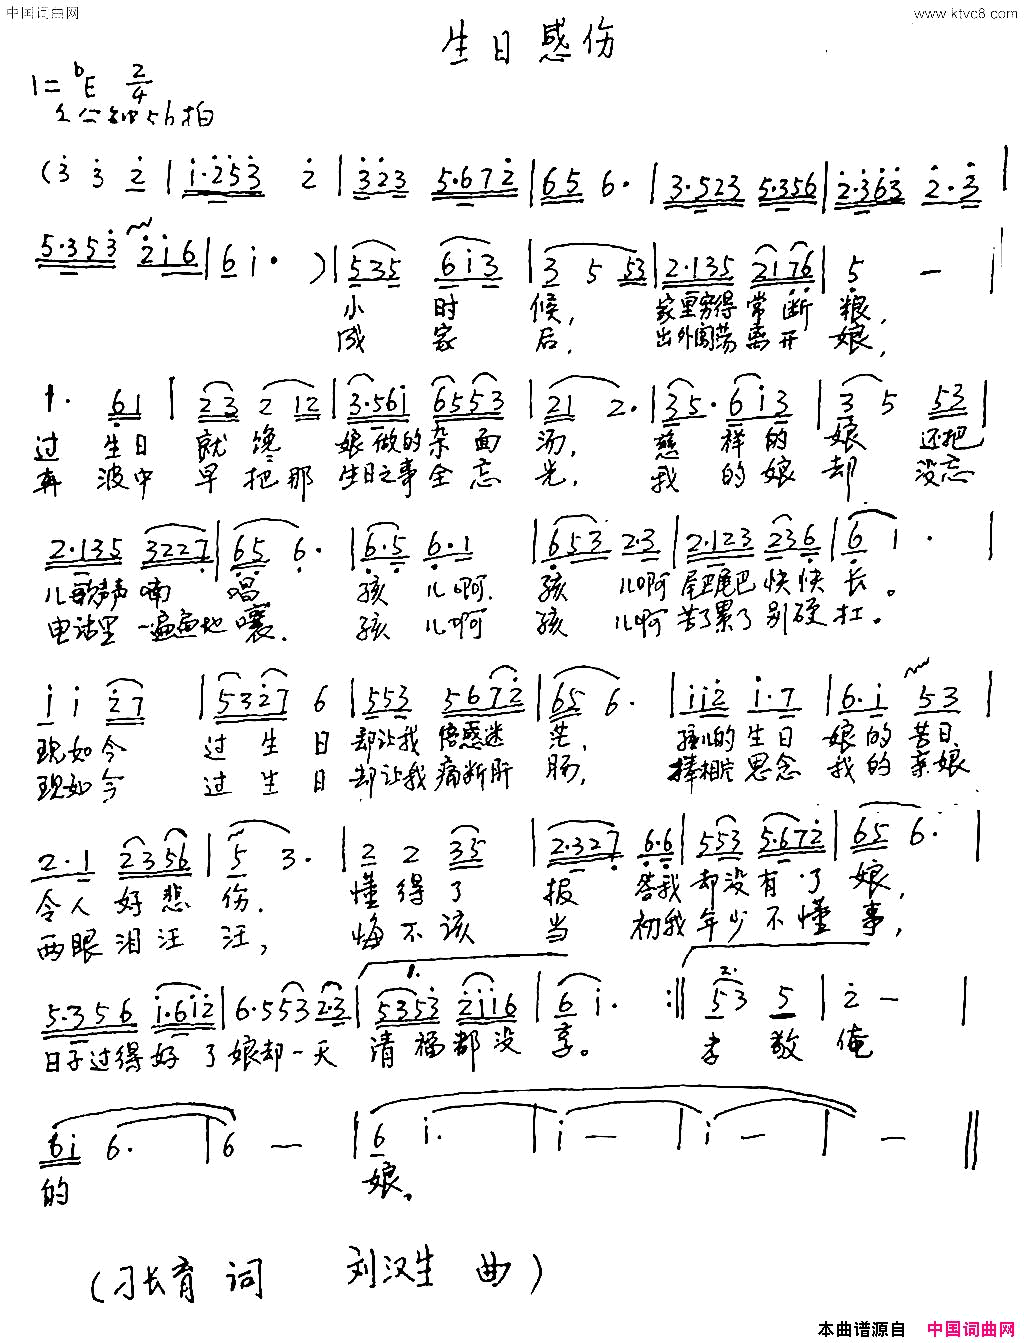 中国词曲网
www.ktvc8.com
生日感伤
1=bE 2/4
每分钟56拍
(3 3 2 | 1·253 2 | 323 5·672 | 65 6· | 3·523 5·356 | 2·363 2·3 |
5·353 216 | 6 1· ) | 535 613 | 3 5 53 | 2·135 2176 | 5 — |
小 时 候， 家里穷得常断粮，
成 家 后， 出外闯荡离开娘，
1· 61 | 23 2 12 | 3·561 6553 | 21 2· | 35·613 | 3 5 53 |
过 生日 就 馋 娘做的杂面 汤， 慈 祥的 娘 还把
奔 波中 早 把那 生日之事全忘 光， 我 的娘 却 没忘
2·135 3227 | 65 6· | 6·5 6·1 | 653 2·3 | 2·123 236 | 6 1· |
儿歌声喃 唱 孩 儿啊， 孩 儿啊 尾巴尾巴快快 长。
电话里一遍遍地 嚷． 孩 儿啊 孩 儿啊 苦了累了别硬 扛。
1 1 27 | 5327 6 | 553 5672 | 65 6· | 112 1·7 | 6·1 53 |
现如今 过 生 日 却让我倍感迷 茫， 孩儿的生日 娘的苦日
现如今 过 生 日 却让我痛断肝 肠， 捧相片思念 我的亲娘
2·1 2356 | 5 3· | 2 2 35 | 2·327 6·6 | 553 5·672 | 65 6· |
令人好悲 伤． 懂得了 报 答我 却没有了 娘，
两眼泪汪 汪， 悔不该 当 初我 年少不懂 事，
5·356 1·612 | 6·553 2·3 | 1. 5353 2116 | 6 1· :‖ 2. 53 5 | 2 — |
日子过得好 了娘却一天 清福都没 享。 孝 敬 俺
61 6· | 6 — | 6 1· | 1 — | 1 — | — ‖
的 娘。
(刁长育 词 刘汉生 曲)
本曲谱源自 中国词曲网